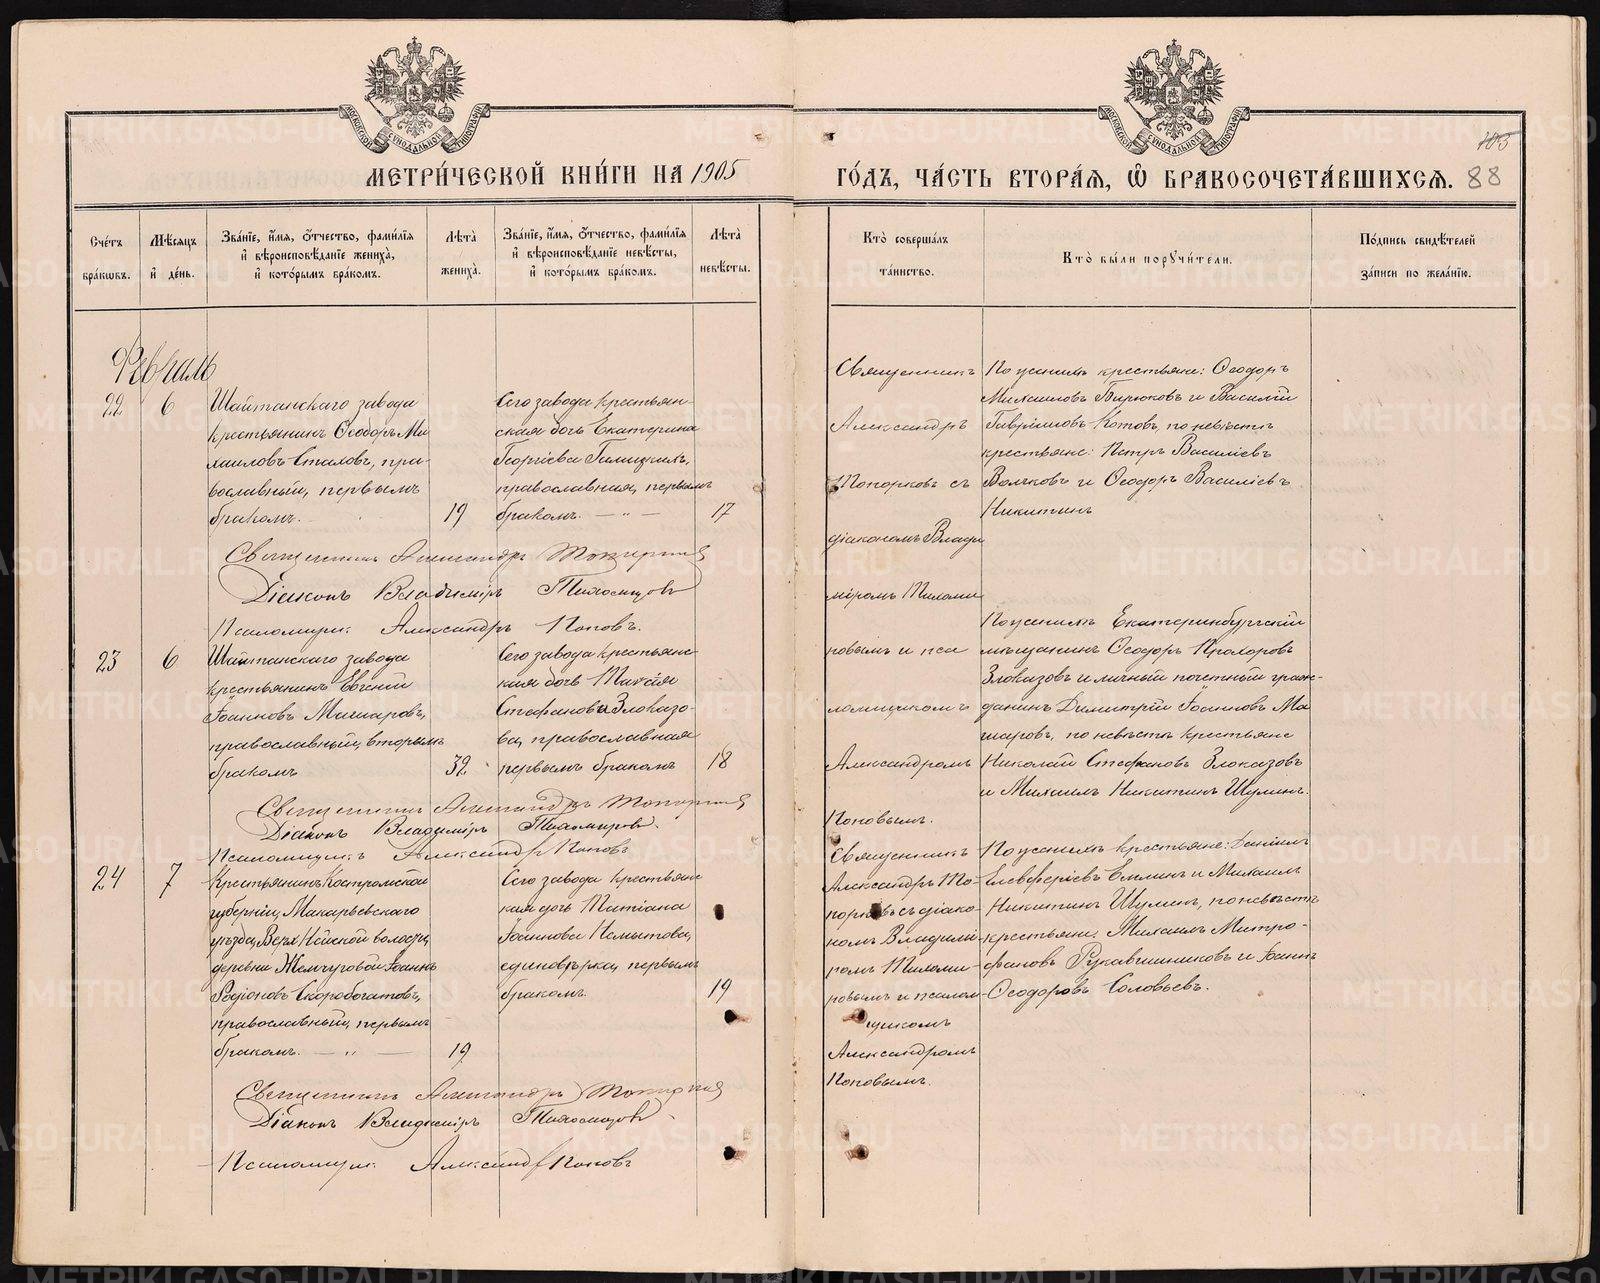 МЕТРИЧЕСКОЙ КНИГИ НА 1905
ГОДЪ, ЧАСТЬ ВТОРАЯ, Ѡ БРАКОСОЧЕТАВШИХСЯ. 88
105
МОСКОВСКОЙ СѴНОДАЛЬНОЙ ТИПОГРАФІИ
МОСКОВСКОЙ СѴНОДАЛЬНОЙ ТИПОГРАФІИ
Счетъ браковъ.
Мѣсяцъ и день.
Званіе, имя, отчество, фамилія и вѣроисповѣданіе жениха, и которымъ бракомъ.
Лѣта жениха.
Званіе, имя, отчество, фамилія и вѣроисповѣданіе невѣсты, и которымъ бракомъ.
Лѣта невѣсты.
Кто совершалъ таинство.
Кто были поручители.
Подпись свидѣтелей записи по желанію.
Февраль
22
6
Шайтанскаго завода
крестьянинъ Ѳеодоръ Ми
хаиловъ Стаховъ, пра-
вославный, первымъ
бракомъ.
19
Сего завода крестьян-
ская дочь Екатерина
Георгіева
православная, первымъ
бракомъ. — „ —
17
Священникъ Александръ Топорковъ
Діаконъ Владиміръ Тихомировъ
Псаломщикъ Александръ Поповъ.
23
6
Шайтанскаго завода
крестьянинъ Евгеній
Іоанновъ Машаровъ,
православный, вторымъ
бракомъ
32
Сего завода крестьянс
кая дочь Таисія
Стефанова Злоказо-
ва, православная
первымъ бракомъ
18
Священникъ Александръ Топорковъ
Діаконъ Владиміръ Тихомировъ.
Псаломщикъ Александръ Поповъ
24
7
Крестьянинъ Костромской
губерніи, Макарьевскаго
уѣзда, Верх Нейской волости,
деревни Жемчуговой Іоаннъ
Родіоновъ Скоробогатовъ,
православный, первымъ
бракомъ. — „ —
19
Сего завода крестьянс
кая дочь Татіана
Іоаннова Немытова,
единовѣрка, первымъ
бракомъ.
19
Священникъ Александръ Топорковъ
Діаконъ Владиміръ Тихомировъ.
Псаломщикъ Александръ Поповъ
Священникъ
Александръ
Топорковъ съ
діакономъ Влади
міромъ Тихоми
ровымъ и пса
ломщикомъ
Александромъ
Поповымъ.
По женихѣ крестьяне: Ѳеодоръ
Михаиловъ Бирюковъ и Василій
Гавріиловъ Котовъ, по невѣстѣ
крестьяне: Петръ Василіевъ
Волковъ и Ѳеодоръ Василіевъ
Никитинъ
По женихѣ Екатеринбургскій
мѣщанинъ Ѳеодоръ Прохоровъ
Злоказовъ и личный почетный граж-
данинъ Димитрій Іоанновъ Ма
шаровъ, по невѣстѣ крестьяне
Николай Стефановъ Злоказовъ
и Михаилъ Никитинъ Шулинъ.
Священникъ
Александръ То-
порковъ съ діако-
номъ Владимі-
ромъ Тихоми-
ровымъ и псалом-
щикомъ
Александромъ
Поповымъ.
По женихѣ крестьяне: Даніилъ
Елевферіевъ Емлинъ и Михаилъ
Никитинъ Шулинъ, по невѣстѣ
крестьяне: Михаилъ Митро-
фановъ Рукавишниковъ и Іоаннъ
Ѳеодоровъ Соловьевъ.
METRIKI.GASO-URAL.RU